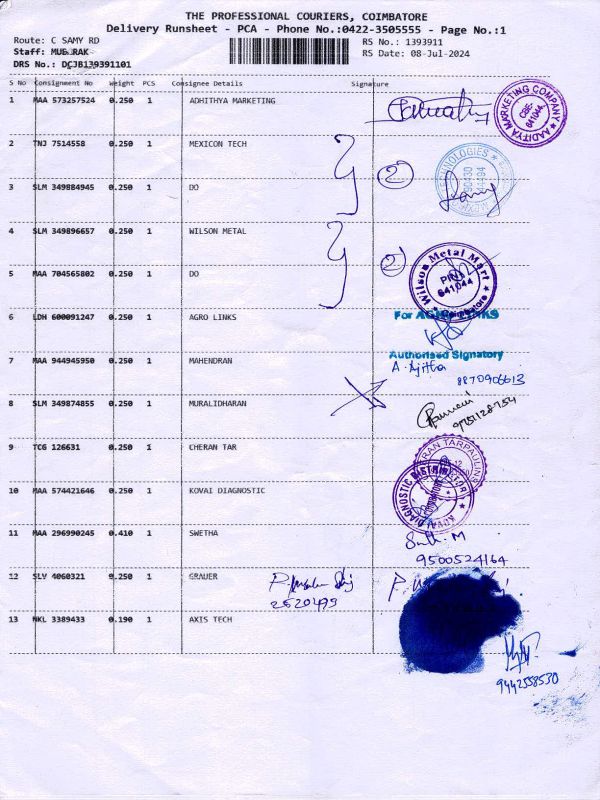 THE PROFESSIONAL COURIERS, COIMBATORE
Delivery Runsheet - PCA - Phone No.:0422-3505555 - Page No.:1
Route: C SAMY RD
RS No.: 1393911
Staff: MUBARAK
RS Date: 08-Jul-2024
DRS No.: DCJB139391101
S No Consignment No Weight PCS Consignee Details Signature
1 MAA 573257524 0.250 1 ADHITHYA MARKETING
AADITYA MARKETING COMPANY CBE- 641044
2 TNJ 7514558 0.250 1 MEXICON TECH
2
3 SLM 349884945 0.250 1 DO
4 SLM 349896657 0.250 1 WILSON METAL
2
Wilson Metal Mart 641044 Coimbatore
5 MAA 704565802 0.250 1 DO
6 LDH 600091247 0.250 1 AGRO LINKS
For AGRO LINKS
Authorised Signatory
7 MAA 944945950 1 0.250 MAHENDRAN
A. Ajitha
8870906613
8 SLM 349874855 0.250 1 MURALIDHARAN
9751128754
9 TCG 126631 0.250 1 CHERAN TAR
10 MAA 574421646 0.250 1 KOVAI DIAGNOSTIC
KOVAI DIAGNOSTIC DISTRIBUTOR
11 MAA 296990245 0.410 1 SWETHA
9500524164
12 SLV 4060321 0.250 1 GRAUER
2520499
13 NKL 3389433 0.190 1 AXIS TECH
9442558530